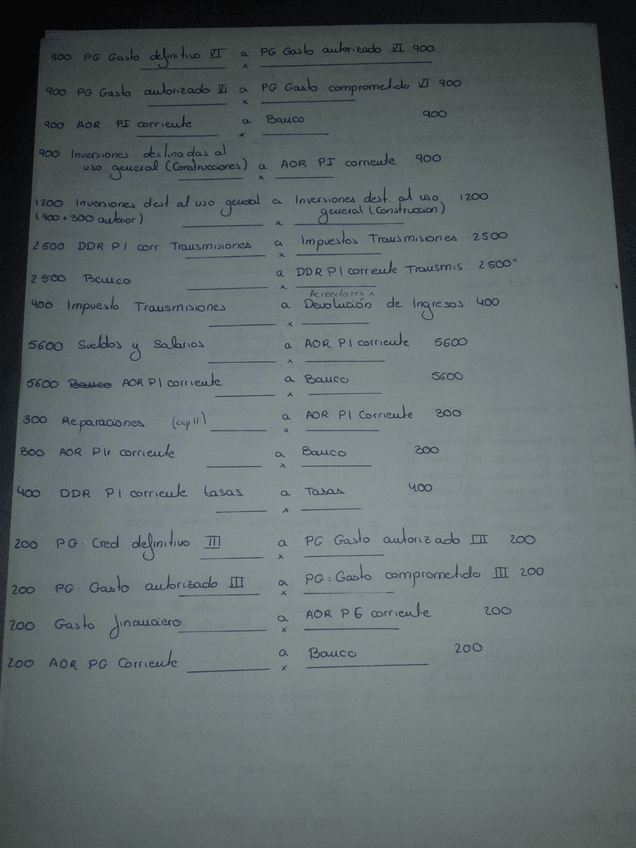 900 PG Gasto definitivo VI a PG Gasto autorizado VI 900
900 PG Gasto autorizado VI a PG Gasto comprometido VI 900
900 AOR PI corriente a Banco 900
900 Inversiones destinadas al
uso general (Construcciones) a AOR PI corriente 900
1200 Inversiones dest al uso general a Inversiones dest. al uso 1200
(900 + 300 anterior) general (Construccion)
2500 DDR PI corr Transmisiones a Impuestos Transmisiones 2500
2500 Banco a DDR PI corriente Transmis. 2500
Acreedores x
400 Impuesto Transmisiones a Devolución de Ingresos 400
5600 Sueldos y Salarios a AOR PI corriente 5600
5600 Banco AOR PI corriente a Banco 5600
300 Reparaciones (cap II) a AOR PI Corriente 300
300 AOR PIr corriente a Banco 300
400 DDR PI corriente tasas a Tasas 400
200 PG: Cred. definitivo III a PG Gasto autorizado III 200
200 PG: Gasto autorizado III a PG: Gasto comprometido III 200
200 Gasto financiero a AOR PG corriente 200
200 AOR PG Corriente a Banco 200